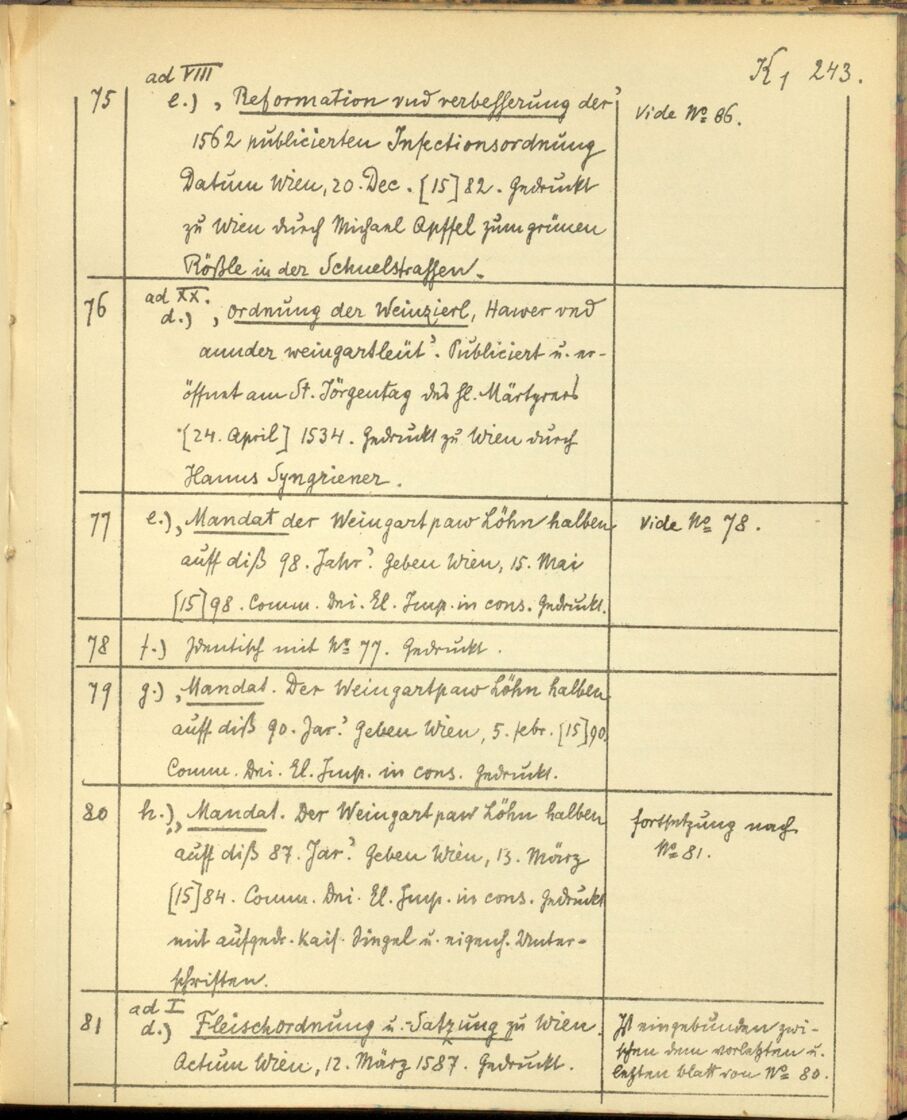 K1 243.
ad VIII
75 e.) ‚Reformation vnd verbesserung der' Vide No 86.
1562 publicierten Infectionsordnung
Datum Wien, 20. Dec. [15]82. Gedruckt
zu Wien durch Michael Apffel zum grünen
Rößle in der Schuelstrassen.
ad XX.
76 d.) ‚Ordnung der Weinzierl, Hawer vnd
annder weingartleüt'. Publiciert u. er-
öffnet am St. Jörgentag des hl. Märtyrers
[24. April] 1534. Gedruckt zu Wien durch
Hanns Syngriener.
77 e.) ‚Mandat der Weingartpaw Löhn halben Vide No 78.
auff diß 98. Jahr'. Geben Wien, 15. Mai
[15]98. Comm. Dni. El. Imp. in cons. Gedruckt.
78 f.) Identisch mit No 77. Gedruckt.
79 g.) ‚Mandat. Der Weingartpaw Löhn halben
auff diß 90. Jar'. Geben Wien, 5. febr. [15]90
Comm. Dni. El. Imp. in cons. Gedruckt.
80 h.) ‚Mandat. Der Weingartpaw Löhn halben fortsetzung nach
auff diß 87. Jar'. Geben Wien, 13. März No 81.
[15]84. Comm. Dni. El. Imp. in cons. Gedruckt
mit aufgedr. Kais. Singel u. eigenh. Unter-
schriften.
ad I
81 d.) Fleischordnung u.-Satzung zu Wien. Ist eingebunden zwi-
Actum Wien, 12. März 1587. Gedruckt. schen dem vorletzten u.
letzten blatt von No 80.